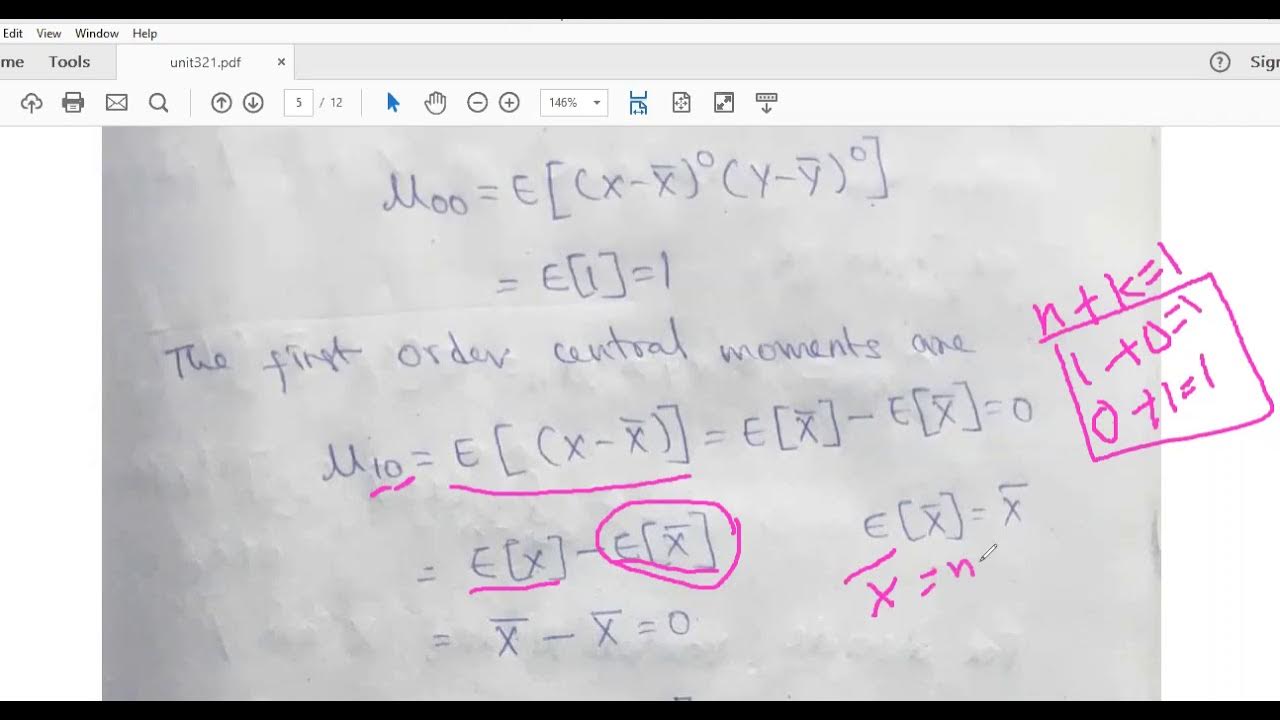 Edit View Window Help
me Tools unit321.pdf × ? Sign
5 / 12 146%
μ₀₀ = E[(X-X̄)⁰(Y-Ȳ)⁰]
= E[1]=1
n+k=1
1+0=1
0+1=1
The first order central moments are
μ₁₀ = E[(X-X̄)] = E[X̄] - E[X̄] = 0
E[X̄] = X̄
= E[X] - E[X̄]
X̄ = n
= X̄ - X̄ = 0